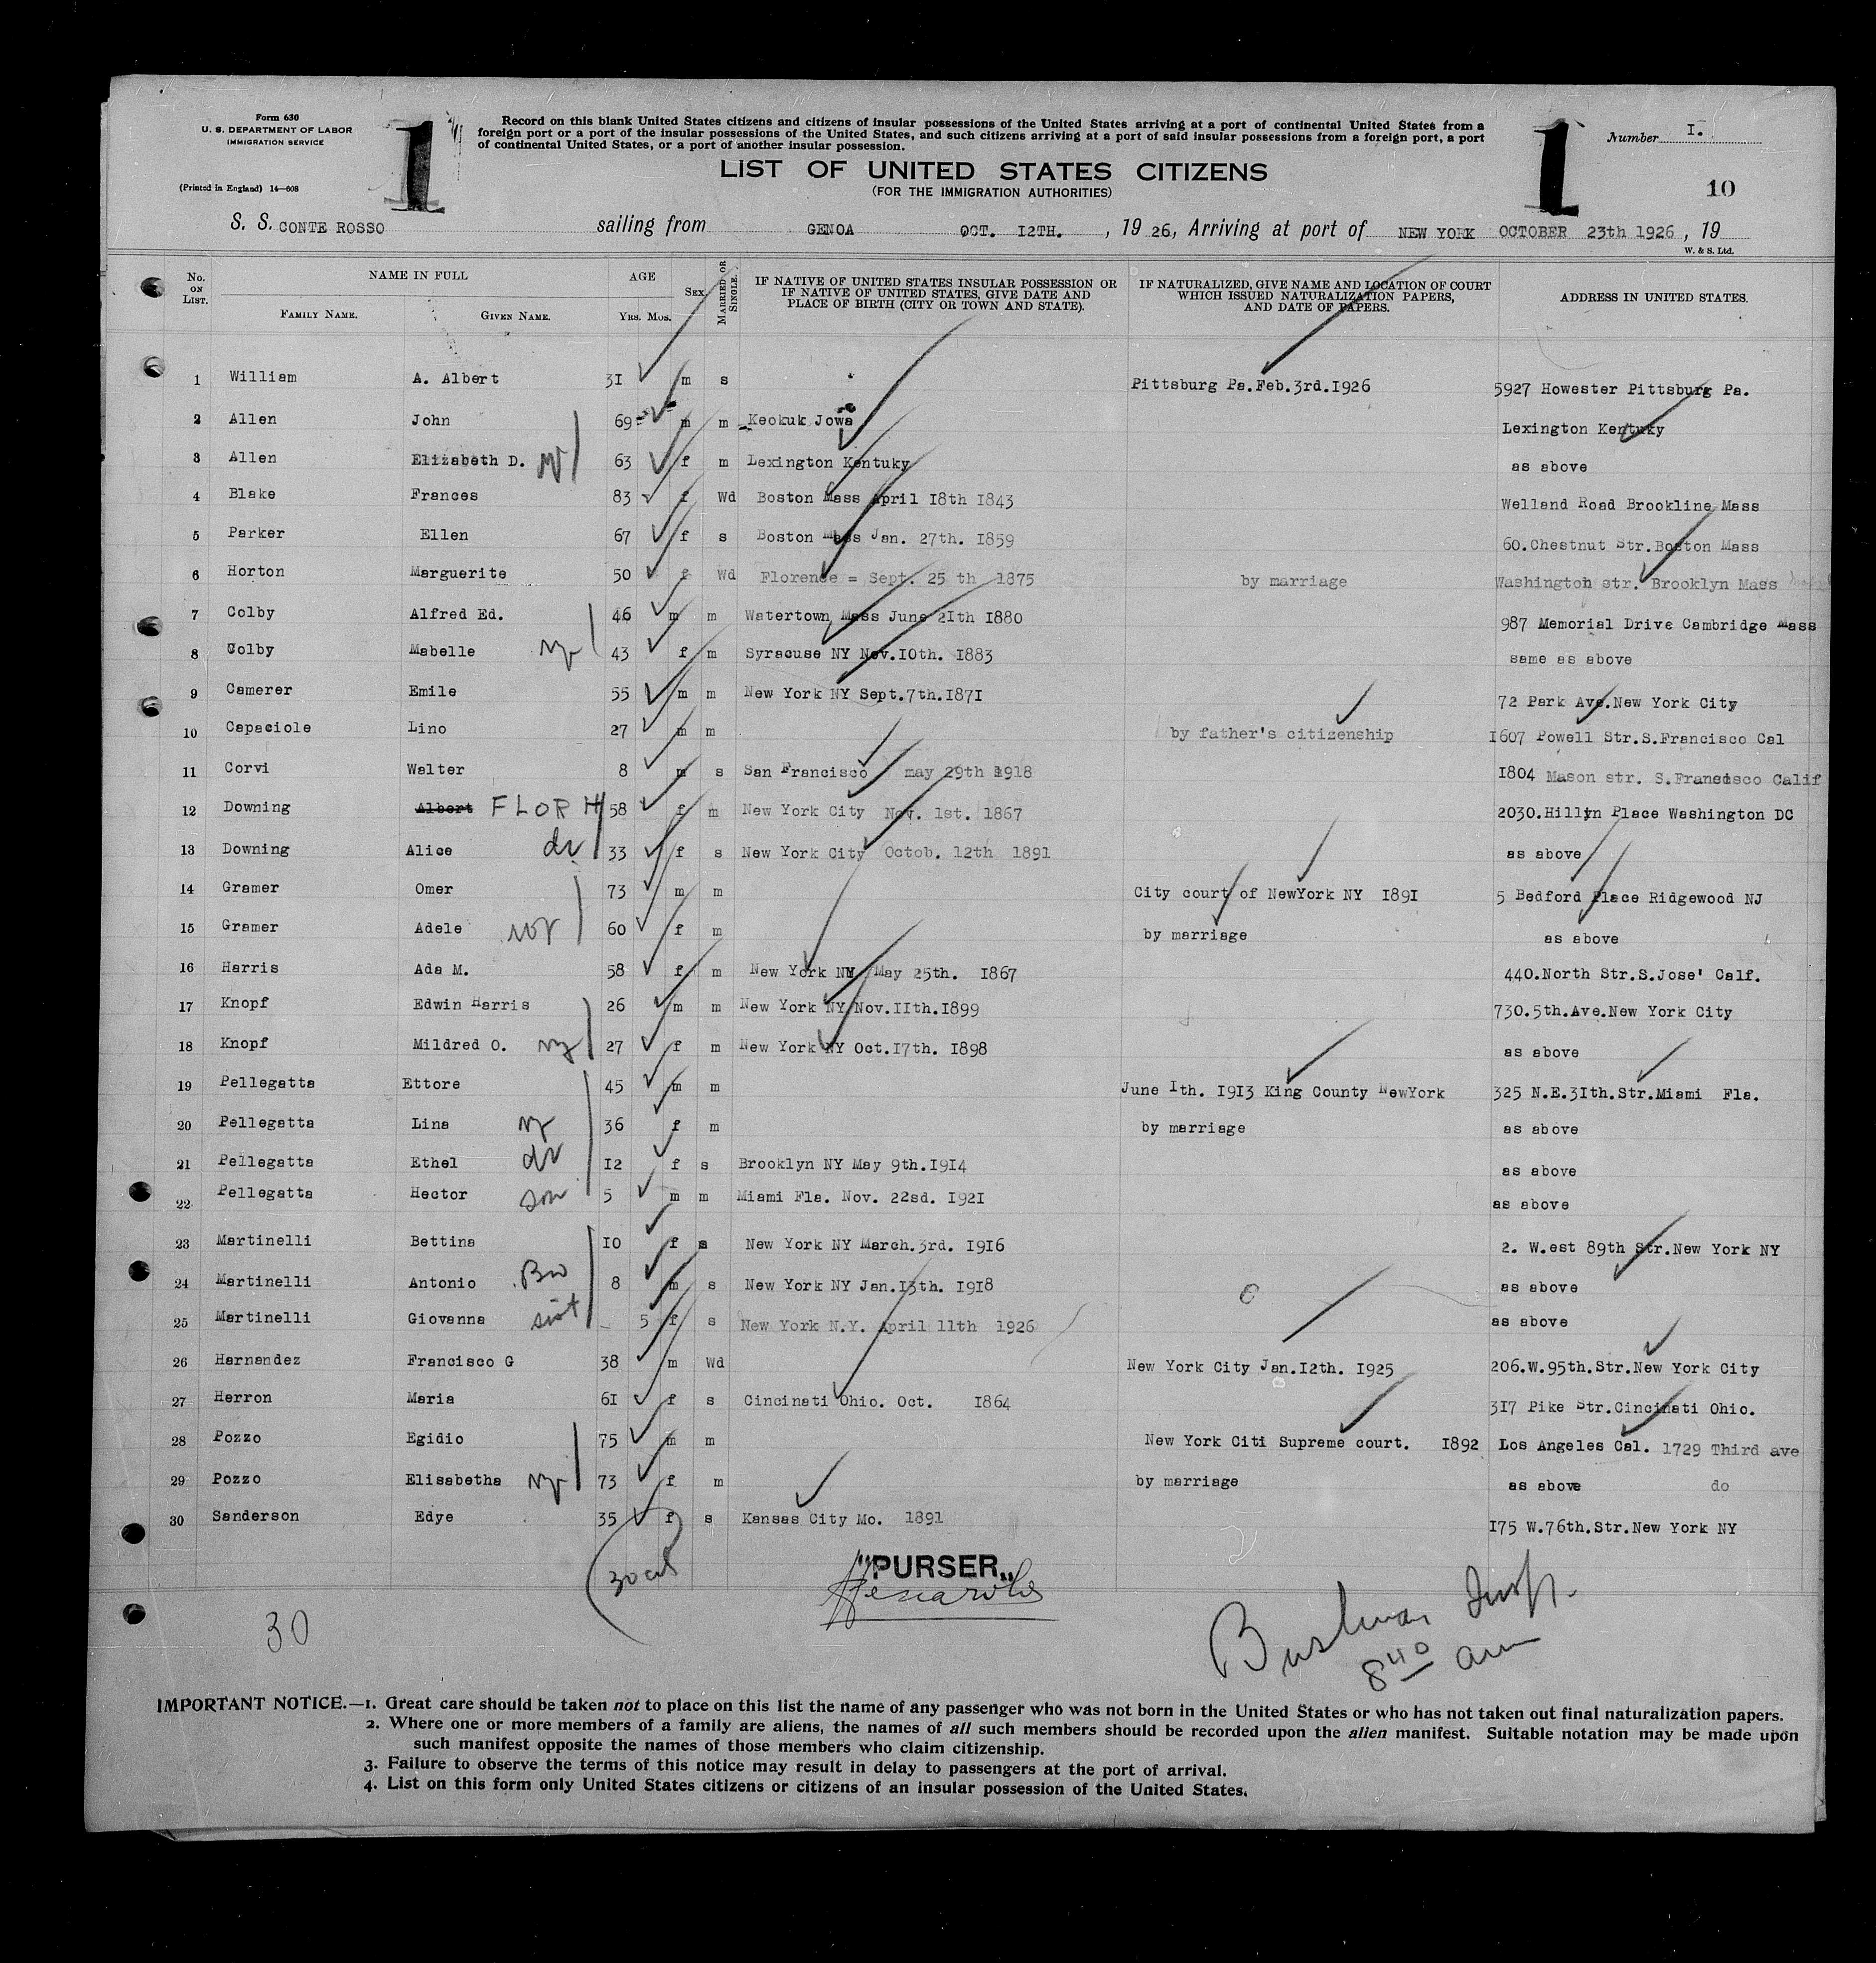 Form 630
U. S. DEPARTMENT OF LABOR
IMMIGRATION SERVICE
(Printed in England) 14—608
1
Record on this blank United States citizens and citizens of insular possessions of the United States arriving at a port of continental United States from a
foreign port or a port of the insular possessions of the United States, and such citizens arriving at a port of said insular possessions from a foreign port, a port
of continental United States, or a port of another insular possession.
1
Number I.
10
LIST OF UNITED STATES CITIZENS
(FOR THE IMMIGRATION AUTHORITIES)
S. S. CONTE ROSSO sailing from GENOA OCT. I2TH. , 19 26, Arriving at port of NEW YORK OCTOBER 23th 1926 , 19
W. & S. Ltd.
No. ON LIST. NAME IN FULL AGE SEX MARRIED OR SINGLE. IF NATIVE OF UNITED STATES INSULAR POSSESSION OR IF NATIVE OF UNITED STATES, GIVE DATE AND PLACE OF BIRTH (CITY OR TOWN AND STATE). IF NATURALIZED, GIVE NAME AND LOCATION OF COURT WHICH ISSUED NATURALIZATION PAPERS, AND DATE OF PAPERS. ADDRESS IN UNITED STATES.
FAMILY NAME. GIVEN NAME. YRS. MOS.
1 William A. Albert 3I m s Pittsburg Pa.Feb.3rd.I926 5927 Howester Pittsburg Pa.
2 Allen John 69 m m Keokuk Jowa Lexington Kentuky
3 Allen Elizabeth D. 63 f m Lexington Kentuky as above
4 Blake Frances 83 f Wd Boston Mass April I8th I843 Welland Road Brookline Mass
5 Parker Ellen 67 f s Boston Mass Jan. 27th. I859 60.Chestnut Str.Boston Mass
6 Horton Marguerite 50 f Wd Florence = Sept. 25 th 1875 by marriage Washington str. Brooklyn Mass
7 Colby Alfred Ed. 46 m m Watertown Mass June 2Ith I880 987 Memorial Drive Cambridge Mass
8 Colby Mabelle 43 f m Syracuse NY Nov.I0th. I883 same as above
9 Camerer Emile 55 m m New York NY Sept.7th.I87I 72 Park Ave.New York City
10 Capaciole Lino 27 m m by father's citizenship I607 Powell Str.S.Francisco Cal
11 Corvi Walter 8 m s San Francisco may 29th 1918 I804 Mason str. S.Francisco Calif
12 Downing Albert FLORH 58 f m New York City Nov. 1st. 1867 2030.Hillyn Place Washington DC
13 Downing Alice 33 f s New York City Octob. 12th 1891 as above
14 Gramer Omer 73 m m City court of NewYork NY I89I 5 Bedford Place Ridgewood NJ
15 Gramer Adele 60 f m by marriage as above
16 Harris Ada M. 58 f m New York NY May 25th. I867 440.North Str.S.Jose' Calf.
17 Knopf Edwin Harris 26 m m New York NY Nov.IIth.I899 730.5th.Ave.New York City
18 Knopf Mildred O. 27 f m New York NY Oct.I7th. I898 as above
19 Pellegatta Ettore 45 m m June Ith. I9I3 King County NewYork 325 N.E.3Ith.Str.Miami Fla.
20 Pellegatta Lina 36 f m by marriage as above
21 Pellegatta Ethel I2 f s Brooklyn NY May 9th.I9I4 as above
22 Pellegatta Hector son 5 m m Miami Fla. Nov. 22sd. I92I as above
23 Martinelli Bettina I0 f s New York NY March.3rd. I9I6 2. W.est 89th Str.New York NY
24 Martinelli Antonio Bro 8 m s New York NY Jan.I3th. I9I8 as above
25 Martinelli Giovanna sist 5 f s New York N.Y. April 11th 1926 as above
26 Harnandez Francisco G 38 m Wd New York City Jan.I2th. I925 206.W.95th.Str.New York City
27 Herron Maria 6I f s Cincinati Ohio. Oct. I864 3I7 Pike Str.Cincinati Ohio.
28 Pozzo Egidio 75 m m New York Citi Supreme court. I892 Los Angeles Cal. 1729 Third ave
29 Pozzo Elisabetha 73 f m by marriage as above do
30 Sanderson Edye 35 f s Kansas City Mo. I89I I75 W.76th.Str.New York NY
"PURSER„
30
8 40 am
IMPORTANT NOTICE.—1. Great care should be taken not to place on this list the name of any passenger who was not born in the United States or who has not taken out final naturalization papers.
2. Where one or more members of a family are aliens, the names of all such members should be recorded upon the alien manifest. Suitable notation may be made upon
such manifest opposite the names of those members who claim citizenship.
3. Failure to observe the terms of this notice may result in delay to passengers at the port of arrival.
4. List on this form only United States citizens or citizens of an insular possession of the United States.